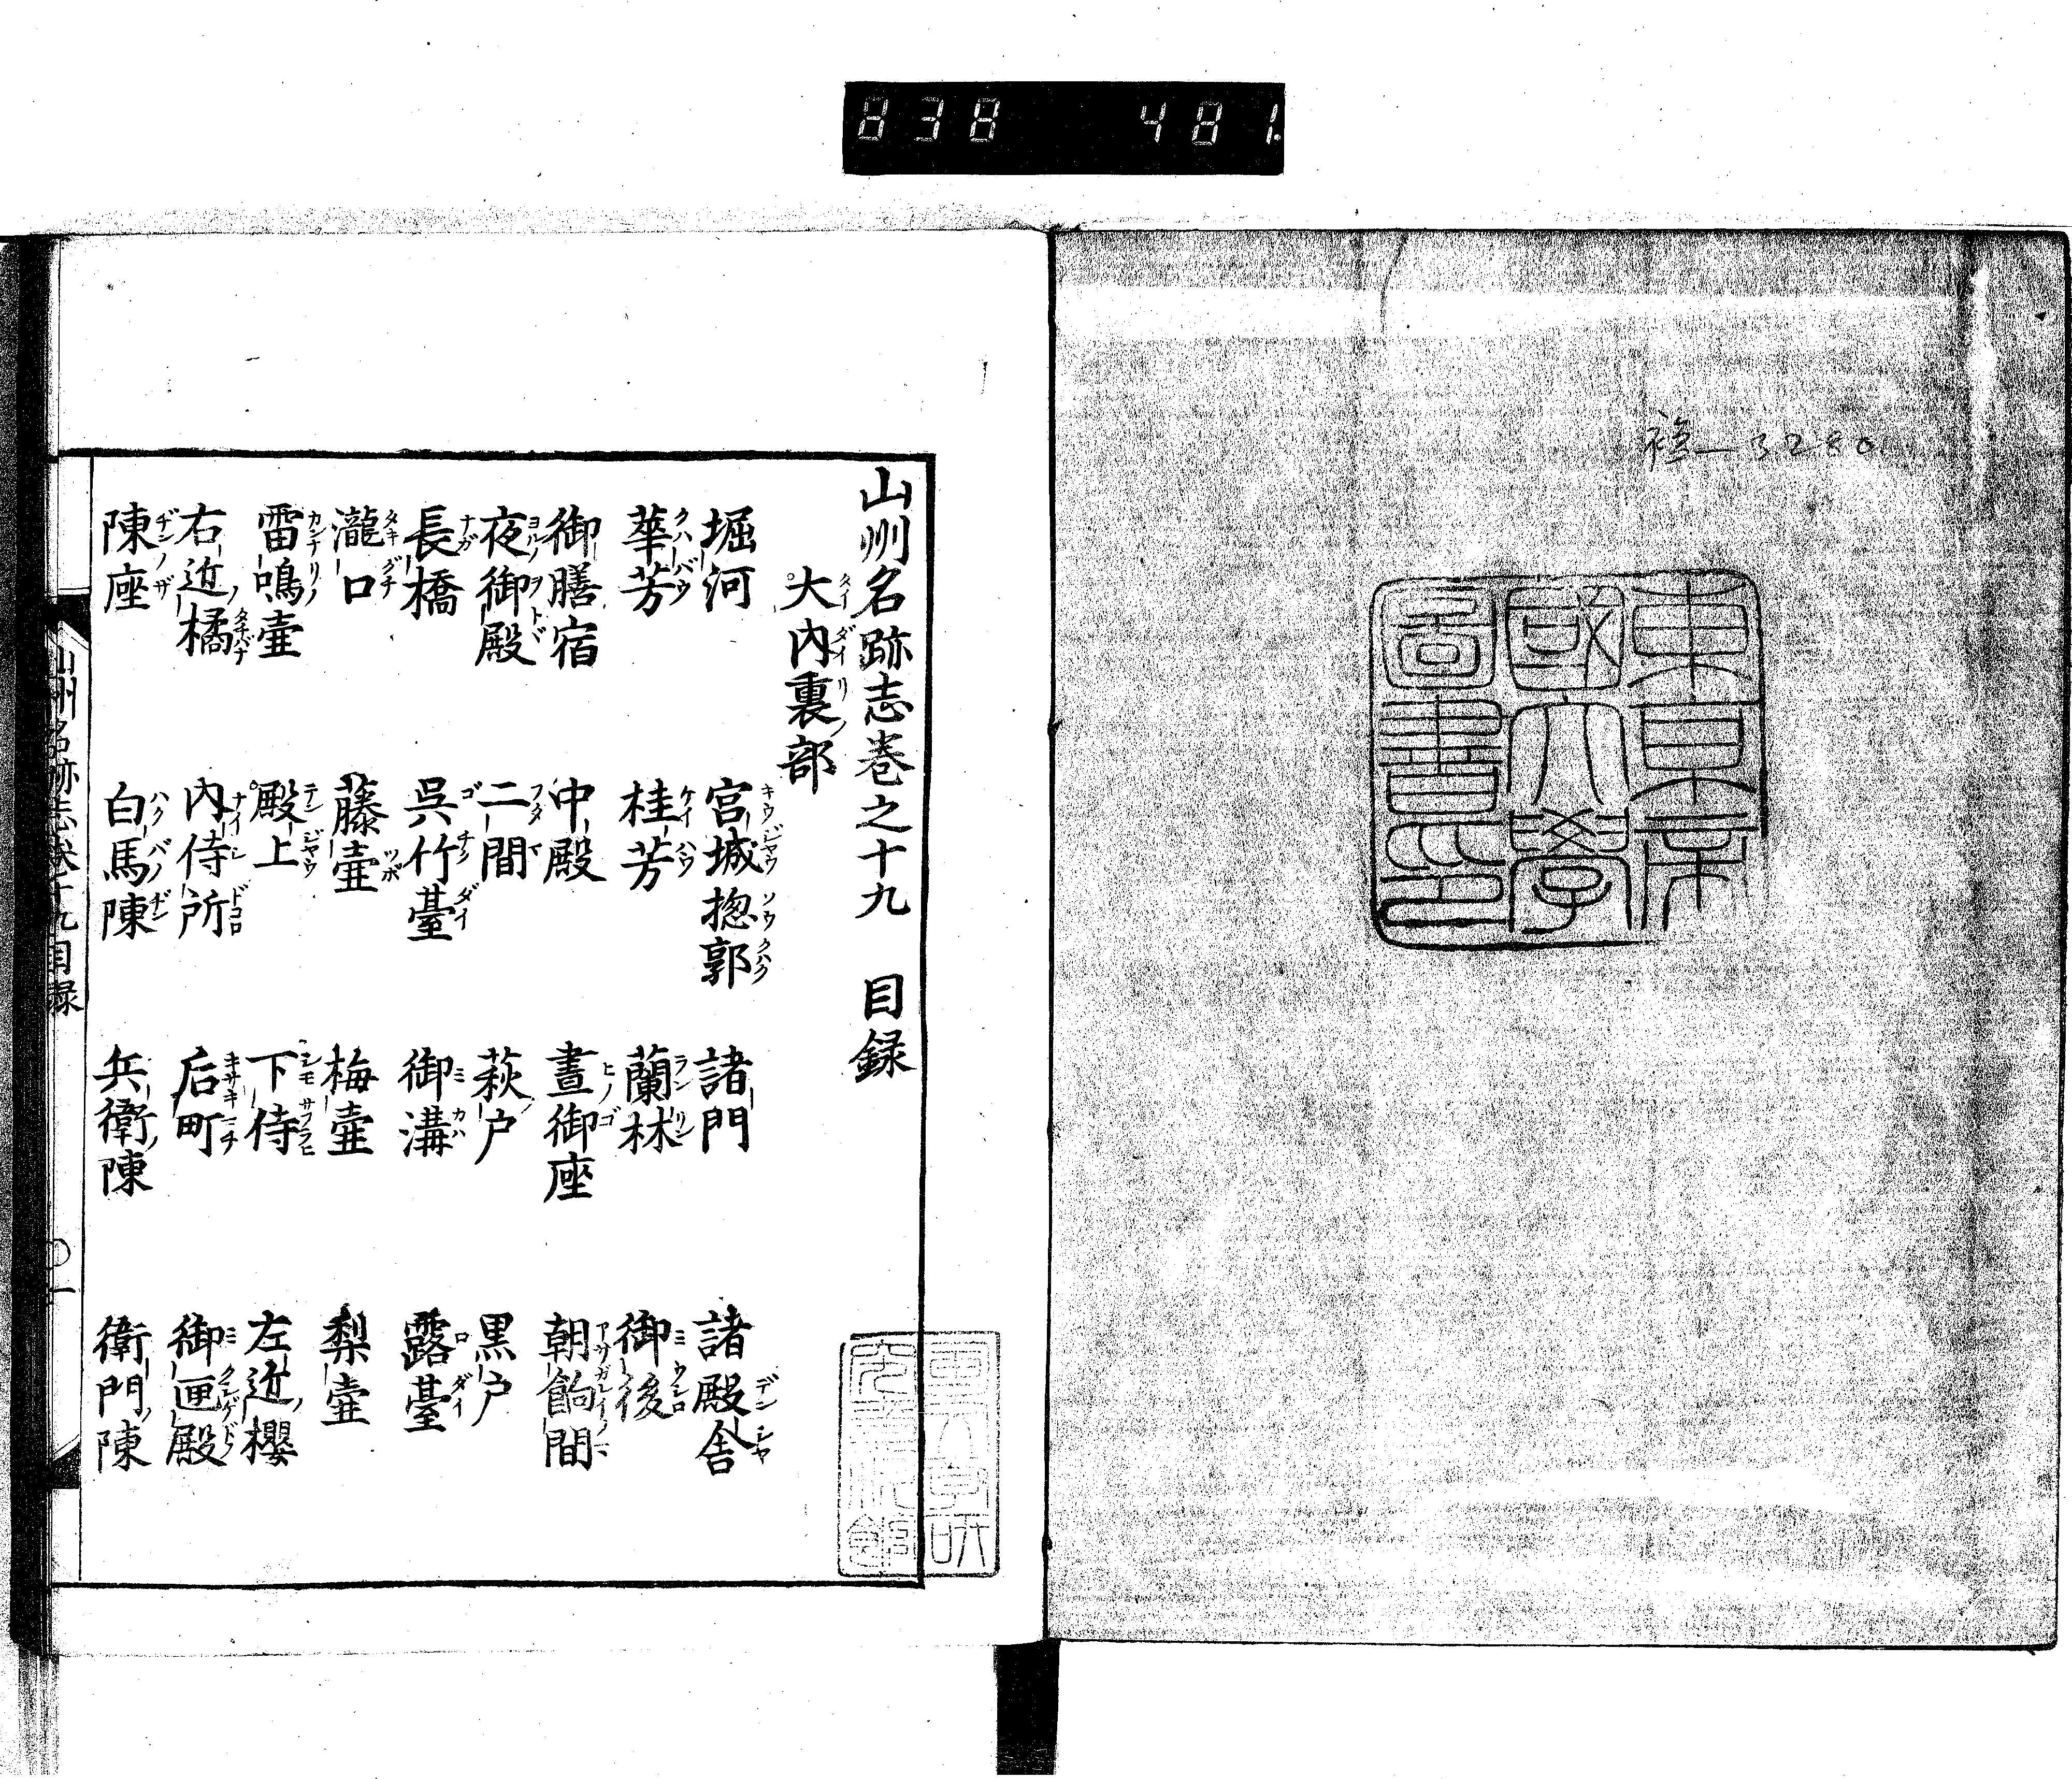 838 481.
3280
東京帝
國大學
圖書印
山州名跡志巻之十九 目録
大内裏部
堀河 宮城惣郭 諸門 諸殿舎
華芳 桂芳 蘭林 御後
御膳宿 中殿 晝御座 朝餉間
夜御殿 二間 萩戸 黒戸
長橋 呉竹臺 御溝 露臺
瀧口 藤壷 梅壷 梨壷
雷鳴壷 殿上 下侍 左近櫻
右近橘 内侍所 后町 御匣殿
陳座 白馬陳 兵衛陳 衛門陳
山州名跡志巻十九目録 〇一